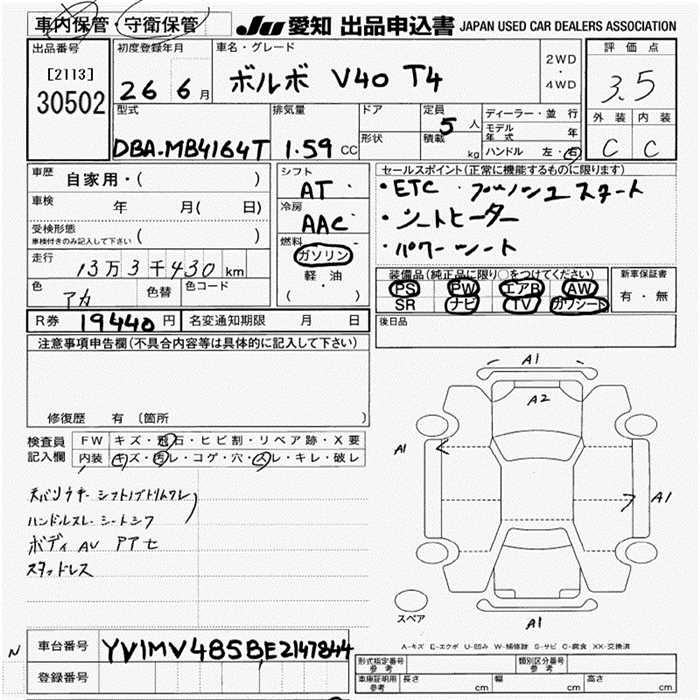 車内保管・守衛保管
JU 愛知 出品申込書 JAPAN USED CAR DEALERS ASSOCIATION
出品番号
[2113]
30502
初度登録年月
26 6月
車名・グレード
ボルボ V40 T4
2WD
・
4WD
評価点
3.5
外装 内装
C C
型式
DBA-MB4164T
排気量
1.59 CC
ドア
形状
定員
5人
積載
kg
ディーラー・並行
モデル年式 年
ハンドル 左・右
車歴
自家用・( )
車検
年 月( 日)
受検形態
車検付きのみ記入して下さい ( )
走行
13万3千430km
色
アカ
色替
色コード
シフト
AT
冷房
AAC
燃料
ガソリン
軽・油
( ・ )
セールスポイント(正常に機能するものに限ります)
・ETC ・プッシュスタート
・シートヒーター
・パワーシート
装備品(純正品に限り○をつけてください)
PS PW エアB AW
SR ナビ TV カワシート
新車保証書
有・無
後日品
R券 19440円 名変通知期限 月 日
注意事項申告欄(不具合内容等は具体的に記入して下さい)
修復歴 有 〔箇所 〕
検査員
記入欄
FW キズ・飛石・ヒビ割・リペア跡・X要
内装 キズ・汚レ・コゲ・穴・スレ・キレ・破レ
ハンドルスレ シートシワ
ボディAU アアセ
スタッドレス
A1
A2
A1
A1
A1
スペア
A-キズ E-エクボ U-凹み W-補修跡 S-サビ C-腐食 XX-交換済
N 車台番号 YV1MV485BE2147844
登録番号
形式指定番号
参考
類別区分番号
参考
車庫証明用
参考
長さ cm 幅 cm 高さ cm